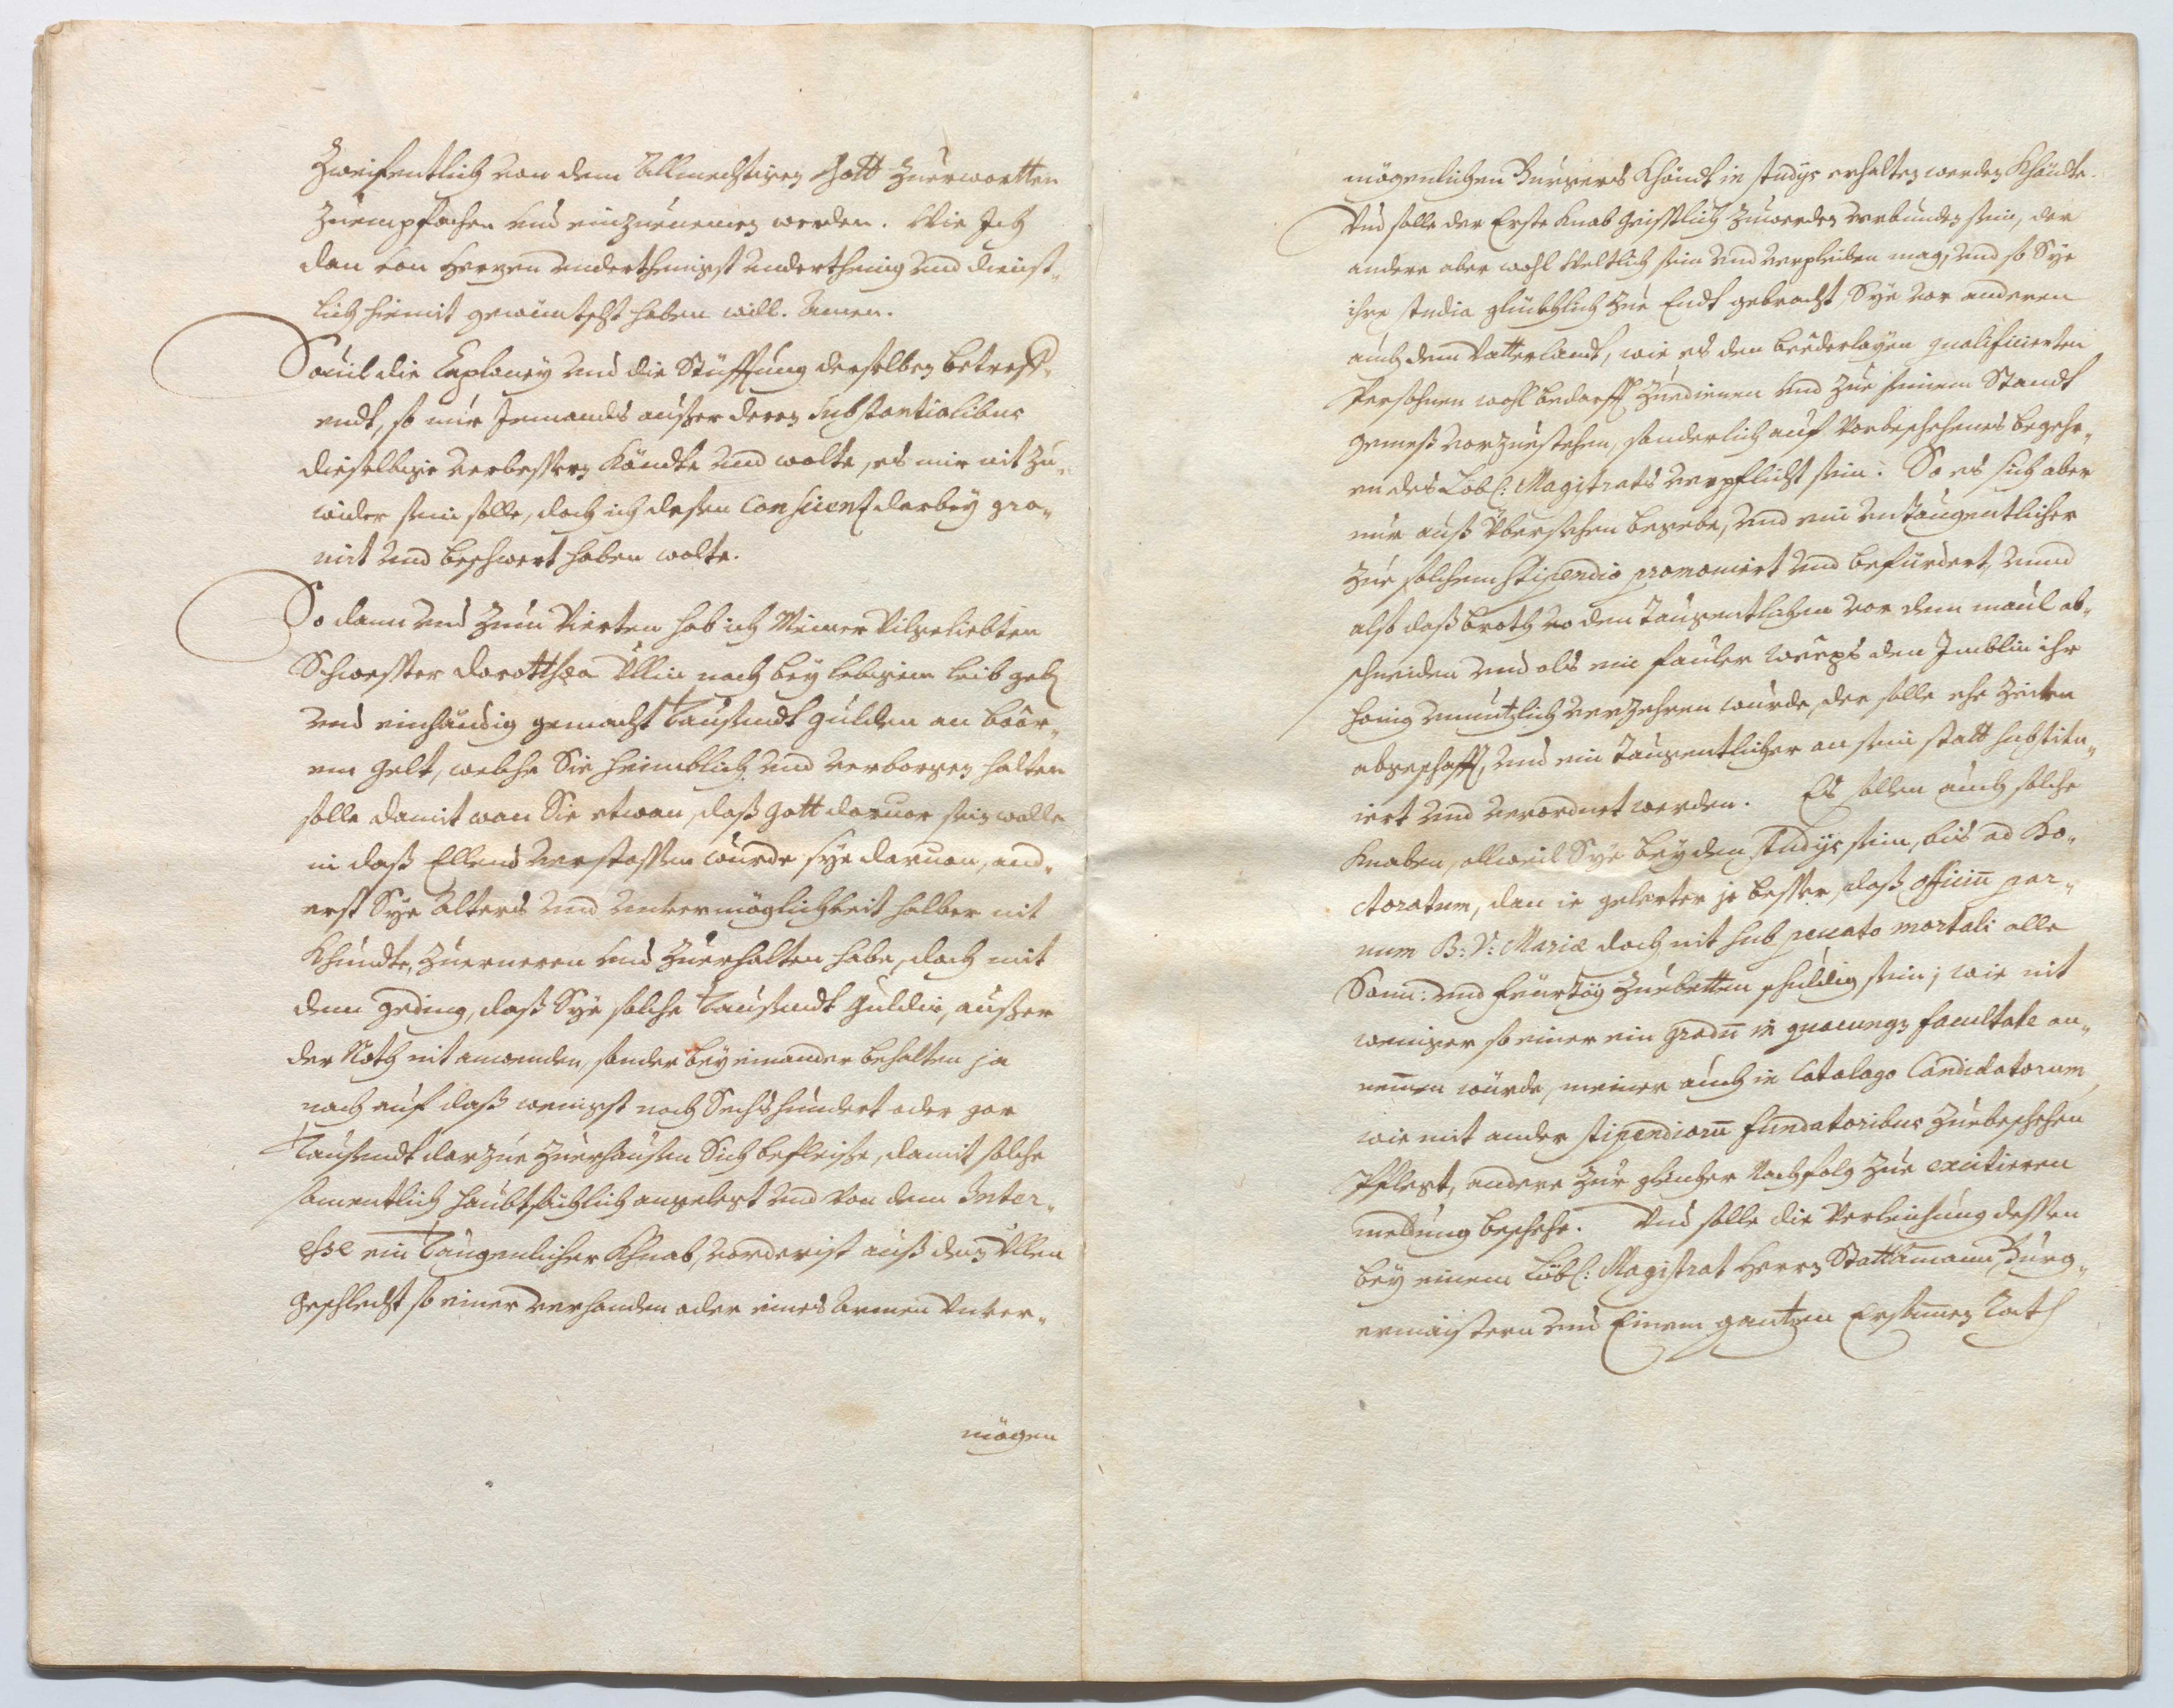 Zweifentlich von dem Allmechtigen Gott Zuerwartten
Zuempfachen und einzunemen werden. Wie Ich
dan von Herzen underthenigst underthenig und dienst„
lich hiemit gewüntscht haben will. Amen.
Souil die Caploney und die Stüfftung derselben betreff„
endt, so mir Jemands ausser deren Substantialibus
dieselbige verbessern köndte und wolte, es mir nit zu„
wider sein solle, doch ich dessen Conscienz darbey gra„
uirt und beschwert haben wolte.
So dann und Zum Vierten hab ich Meiner Vilgeliebten
Schwester Dorotthea Ullin noch bey lebigem leib geb
und einhändig gemacht Taussendt gulden an baar„
em gelt, welche Sie heimblich und verborgen halten
solle damit wan Sie etwan, dass gott daruor sein wolle
in dass Ellend verstossen wurde sye daruon, and„
erst Sye Alters und Unvermöglichkeit halber nit
khundte, Zuerneren und Zuerhalten habe, doch mit
dem geding, dass Sye solche Taussendt gulden, ausser
der Noth nit anwenden, sonder bey einander behalten ja
noch auf dass wenigst noch Sechshundert oder gar
Taussendt darzue Zuerhausen Sich befleisse, damit solche
samentlich haubtsächlich angelegt und von dem Inter„
esse ein Taugenlicher Khnab, vorderist auss den Ullen
geschlecht so einer verhanden oder eines Armen Unver„
mögen
mögenlichen Burgers Khündt in studijs erhalten werden khöndte.
Und solle der Erste Knab geistlich Zuwerden verbunden sein, der
andere aber wohl Weltlich sein und verpleiben mag, und so Sye
ihre studia glücklich Zue Endt gebracht, Sye vor anderen
auch dem Vatterlandt, wie es den beederlayen qualificierten
Persohnen wohl bedarff Zuedienen und Zue seinem Standt
gemess vorzuestehen, sonderlich auf Vorbeschehenes begehr„
en des Löbl: Magistrats verpflicht sein. So es sich aber
nur auss Übersehen begebe, und ein untaugentlicher
Zue solchem Stipendio promoviert und befürdert, unnd
also dass broth vo den Taugentlichen vor dem maul ab„
schneiden und als ein fauler Weeps den Imblin ihr
honig unnutzlich verzehren wurde, der solle ehe Zeiten
abgeschafft, und ein Taugentlicher an sein statt substitu„
iert und verordnet werden. Es sollen auch solche
Knaben, allweil Sye bey den studijs sein, bis ad Do„
ctoratum, dan ie gelerter je besser, dass officiu par„
uum B: V: Mariæ doch nit sub peccato mortali alle
Sonn: und feurtäg Zuebetten schuldig sein; wie nit
weniger so einer ein gradu in quacunq facultate an„
nemen wurde, meiner auch in Catalogo Candidatorum
wie mit ander stipendioru fundatoribus Zuebeschehen
pflegt, andere Zue glicher Nachfolg Zue excitieren
meldung beschehe. Und solle die Verleihung dessen
bey einem Löbl: Magistrat Herrn Stattamann, Burg„
ermaistern und Einem gantzen Ersamen Rath